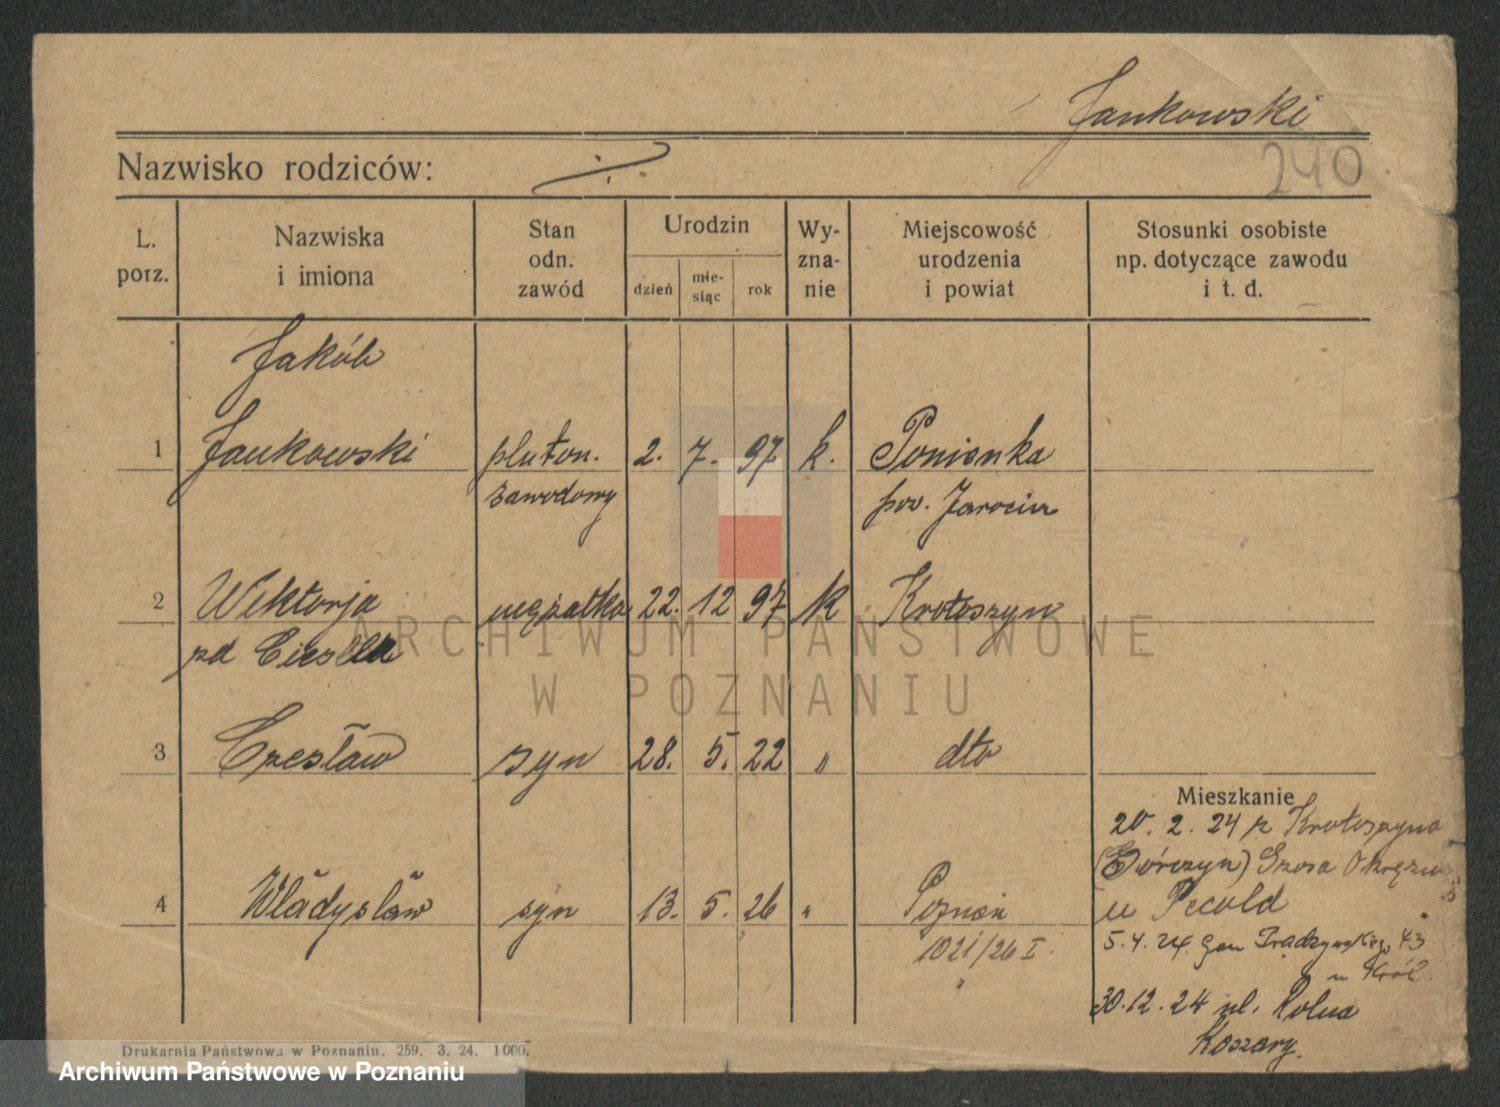 Jankowski
240
Nazwisko rodziców: ./.
L. porz.
Nazwiska i imiona
Stan odn. zawód
Urodzin
dzień
mie-siąc
rok
Wy-zna-nie
Miejscowość urodzenia i powiat
Stosunki osobiste np. dotyczące zawodu i t. d.
Jakób
1 Jankowski pluton. 2. 7. 97 k. Ponienka
zawodowy pow. Jarocin
2 Wiktorja mężatka 22. 12 97 k Krotoszyn
zd Ciesla
3 Czesław syn 28. 5. 22 " dto
Mieszkanie
20. 2. 24 z Krotoszyna
(Górczyn) Szosa Okrężna
u Pecold
4 Władysław syn 13. 5. 26 " Poznań
1021/26 I.
5. 4. 24. gen Prądzyńskiego 43
u Król
30. 12. 24 ul. Rolna
Koszary.
Drukarnia Państwowa w Poznaniu. 259. 3. 24. 1000.
ARCHIWUM PAŃSTWOWE
W POZNANIU
Archiwum Państwowe w Poznaniu